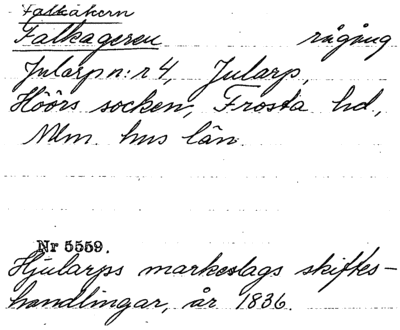 Falkåkern
Falkageren rågång
Jularp n:r 4, Jularp,
Höörs socken, Frosta hd,
Mlm. hus län.
Nr 5559.
Hjularps markeslags skiftes-
handlingar, år 1836.